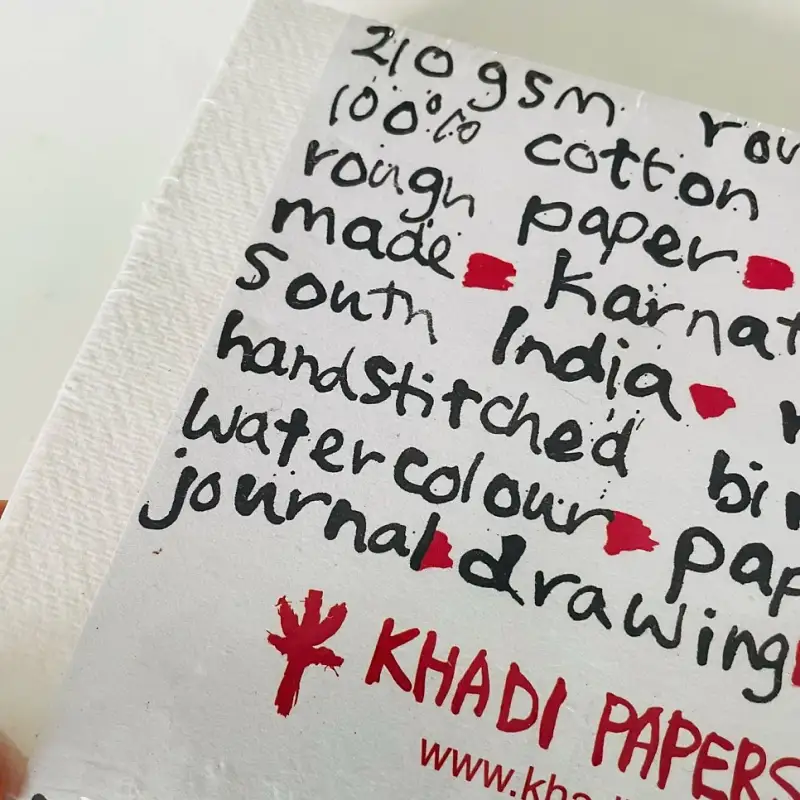 210 gsm rou
100% cotton
rough paper
made Karnat
South India
handstitched bin
watercolour pap
journal drawing
KHADI PAPERS
www.kha